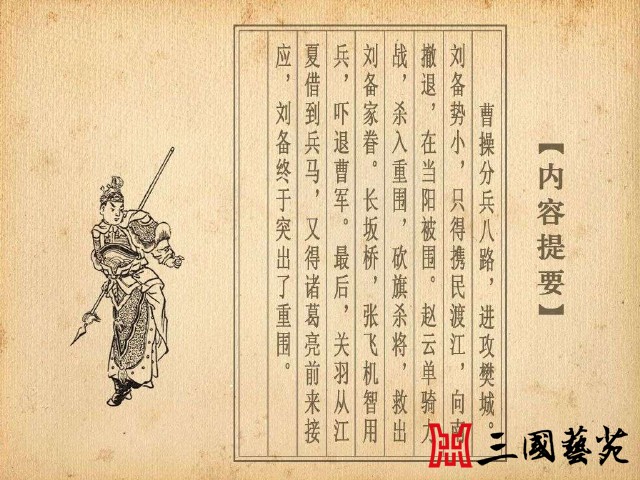 【内容提要】
曹操分兵八路，进攻樊城。
刘备势小，只得携民渡江，向南
撤退，在当阳被围。赵云单骑力
战，杀入重围，砍旗杀将，救出
刘备家眷。长坂桥，张飞机智用
兵，吓退曹军。最后，关羽从江
夏借到兵马，又得诸葛亮前来接
应，刘备终于突出了重围。
三國藝苑